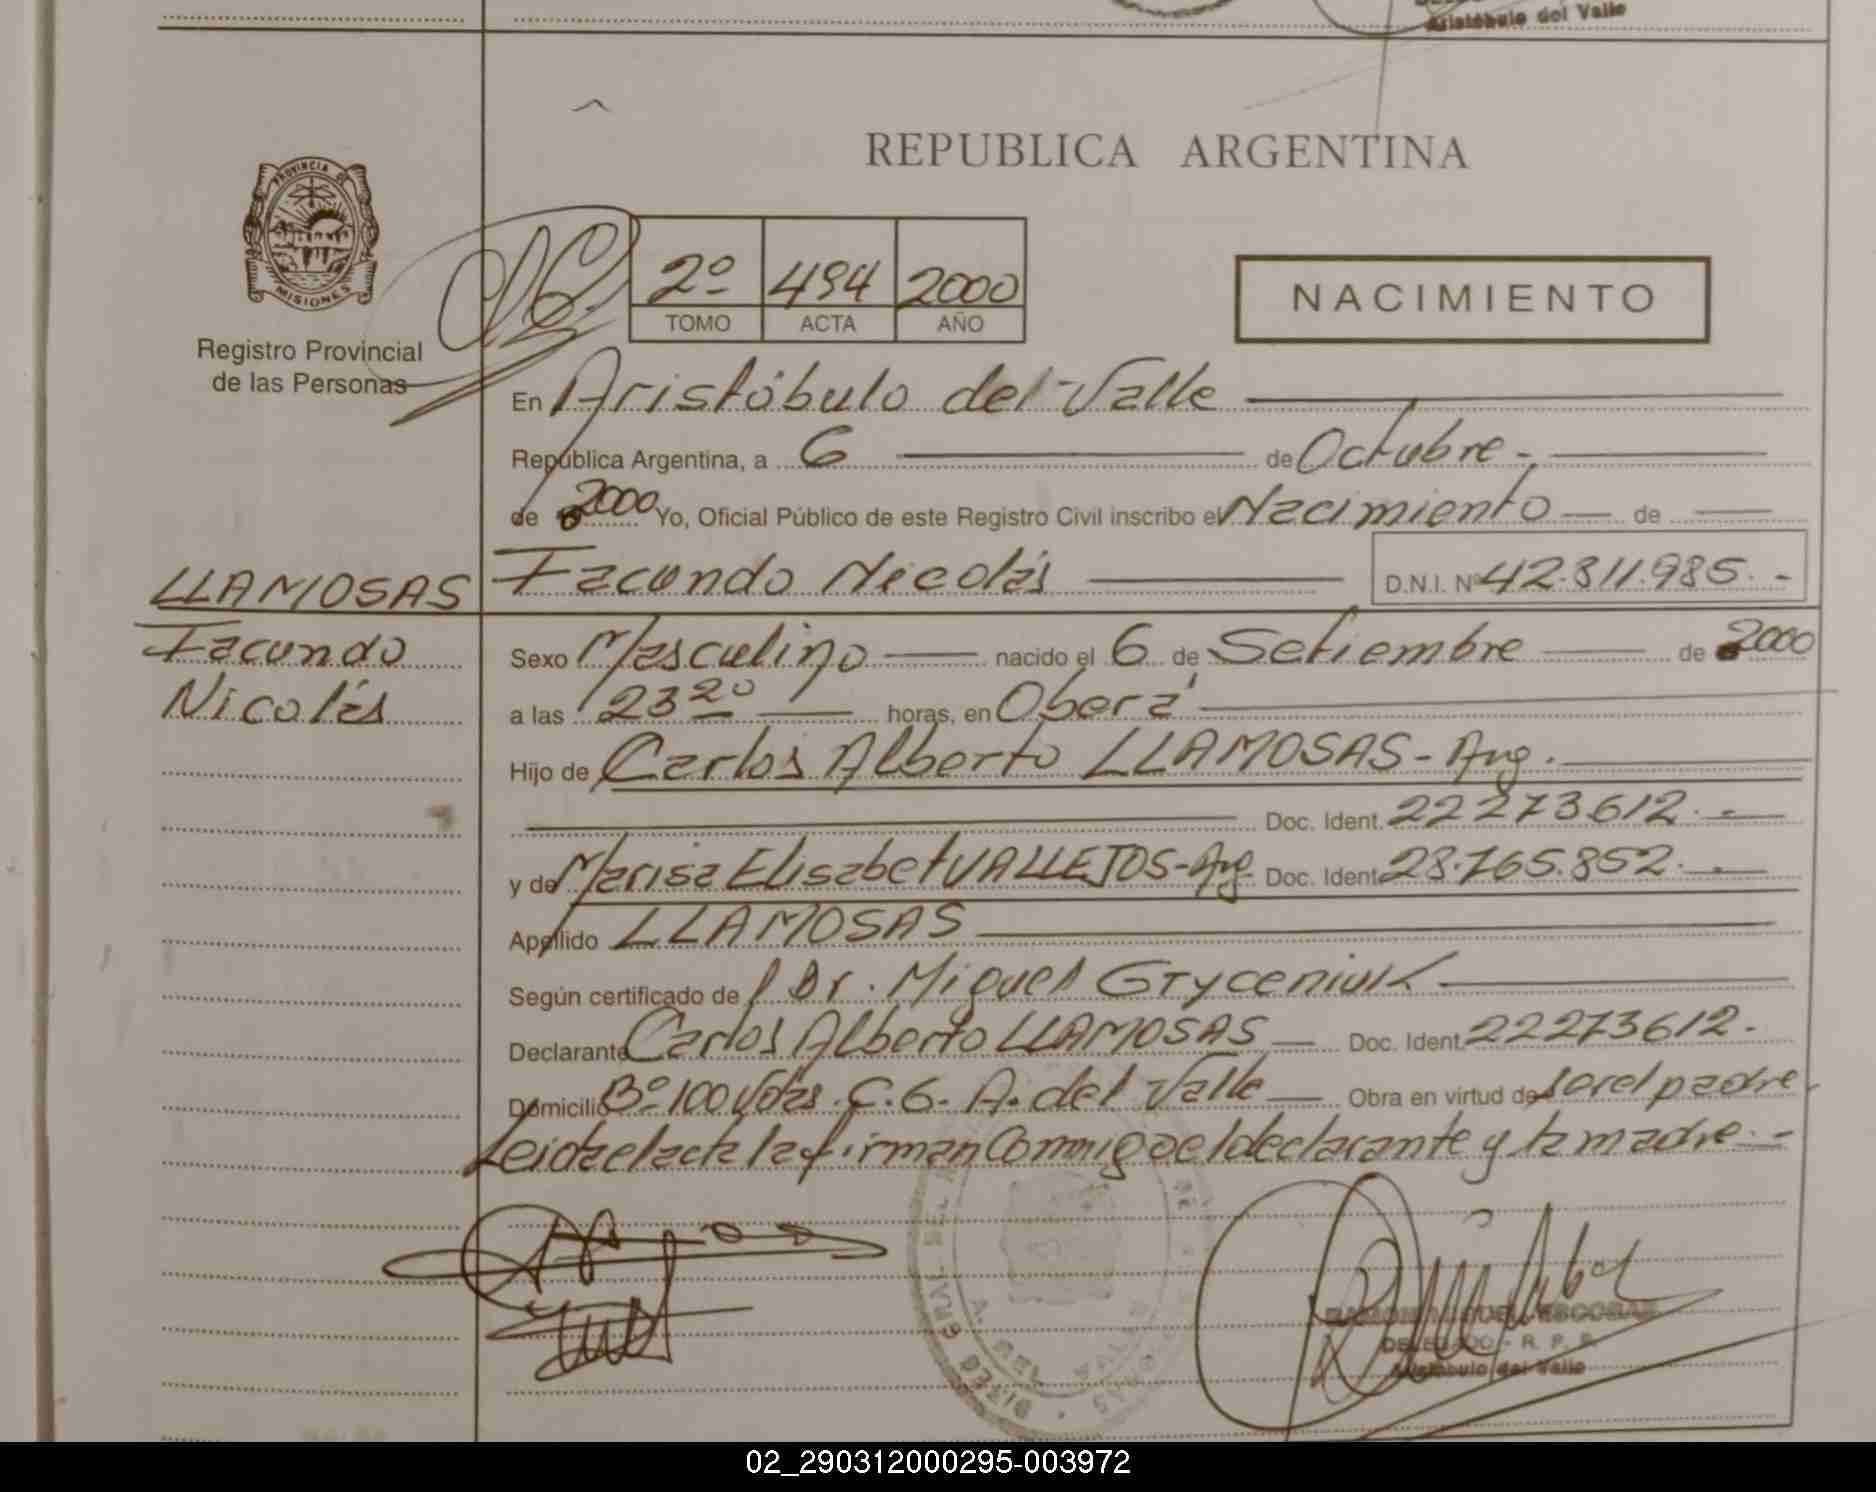 Aristóbulo del Valle
REPUBLICA ARGENTINA
PROVINCIA DE
MISIONES
Registro Provincial
de las Personas
2º 494 2000
TOMO ACTA AÑO
NACIMIENTO
En Aristóbulo del Valle
República Argentina, a 6 de Octubre -
de 2000 Yo, Oficial Público de este Registro Civil inscribo el Nacimiento de
LLAMOSAS Facundo Nicolás D.N.I. Nº 42.811.985. -
Facundo
Nicolás
Sexo Masculino nacido el 6 de Setiembre de 2000
a las 23 20 horas, en Oberá
Hijo de Carlos Alberto LLAMOSAS - Arg.
Doc. Ident. 22273612. -
y de Marisa Elisabet VALLEJOS - Arg. Doc. Ident. 28.765.852. -
Apellido LLAMOSAS
Según certificado de Dr. Miguel Gryceniuk
Declarante Carlos Alberto LLAMOSAS Doc. Ident. 22273612.
Domicilio Bº 100 Vdas. C. 6. A. del Valle Obra en virtud de ser el padre.
Leida el acta la firman conmigo el declarante y la madre. -
RAMON MIGUEL ESCOBAR
DELEGADO - R. P. P.
Aristóbulo del Valle
02_290312000295-003972